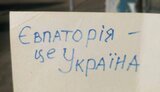 Євпаторія –
це Україна